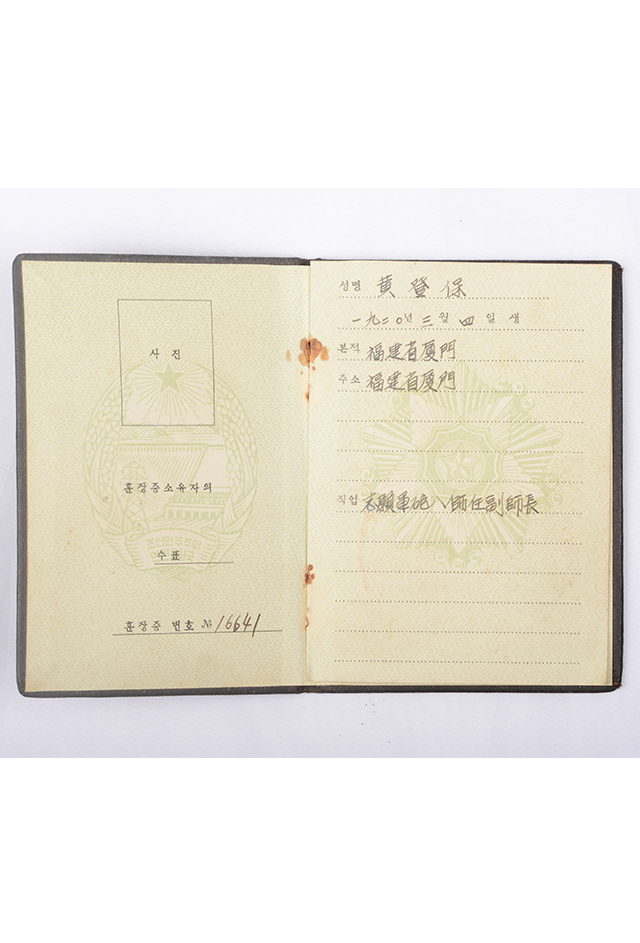 사진
훈장증소유자의
수표
훈장증 번호 № 16641
성명 黄登保
一九二〇년 三 월 四 일 생
본적 福建省厦門
주소 福建省厦門
직업 志願軍砲八師任副師長